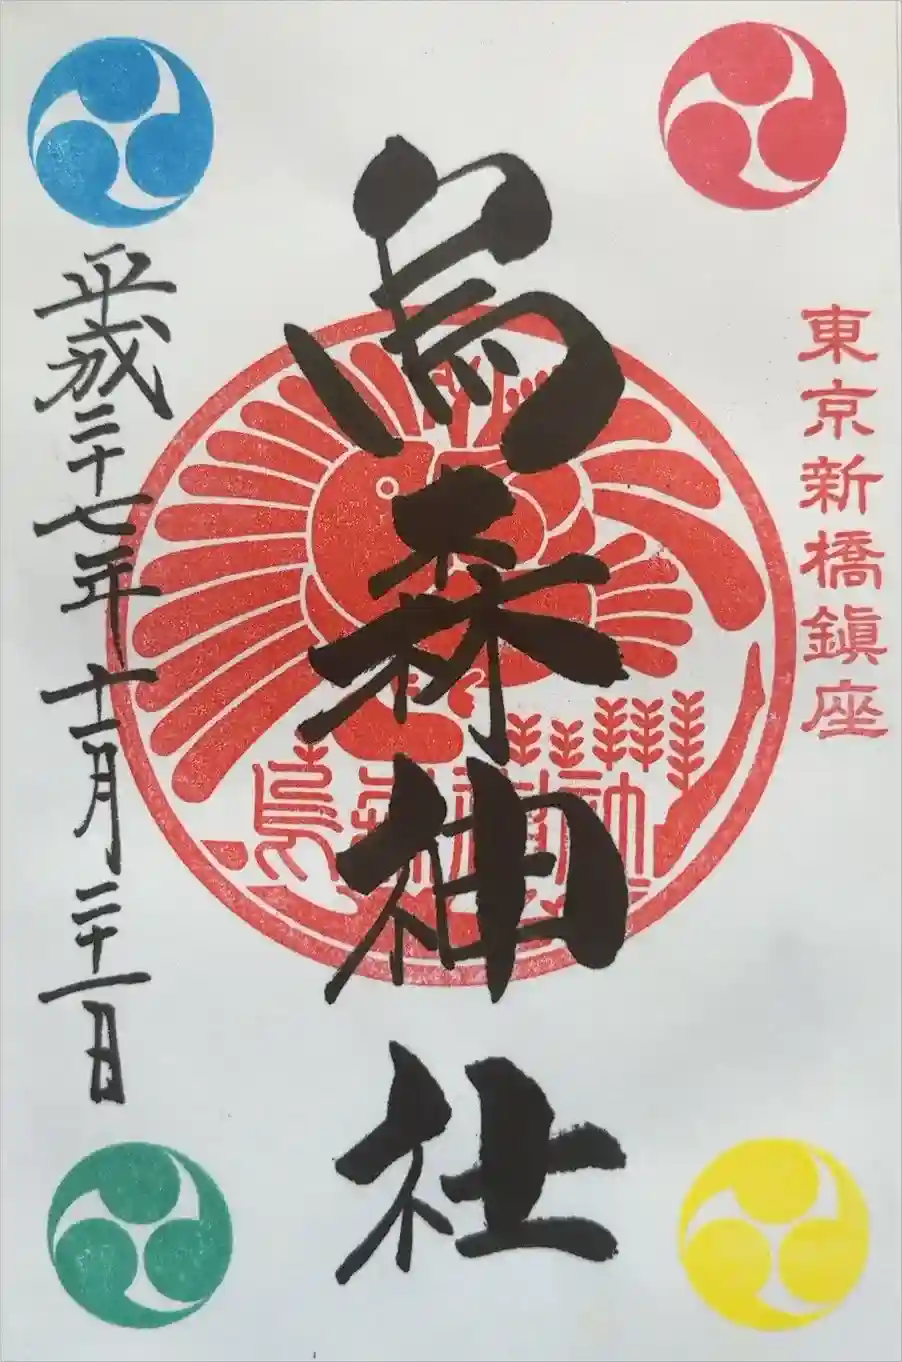 東京新橋鎮座
烏森神社
烏森神社
平成二十七年十二月二十一日